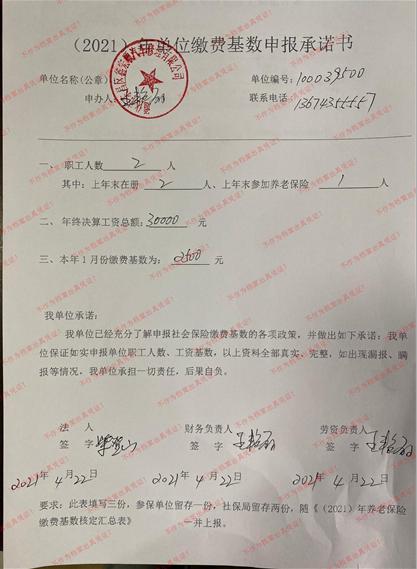 （2021）年单位缴费基数申报承诺书
单位名称(公章) 单位编号: 100039500
申办人: 联系电话:
一、 职工人数 2 人
其中: 上年末在册 2 人、上年末参加养老保险 1 人
二、 年终决算工资总额: 30000 元
三、本年 1 月份缴费基数为: 2500 元
我单位承诺:
我单位已经充分了解申报社会保险缴费基数的各项政策，并做出如下承诺: 我单
位保证如实申报单位职工人数、工资基数，以上资料全部真实、完整，如出现漏报、瞒
报等情况，我单位承担一切责任，后果自负。
法 人 财务负责人 劳资负责人
签 字 签 字 签 字
2021年 4 月 22日 2021 年 4 月 22日 2021 年 4 月 22 日
要求: 此表填写三份，参保单位留存一份，社保局留存两份，随《（2021）年养老保险
缴费基数核定汇总表》 一并上报。
不作为档案出具凭证!